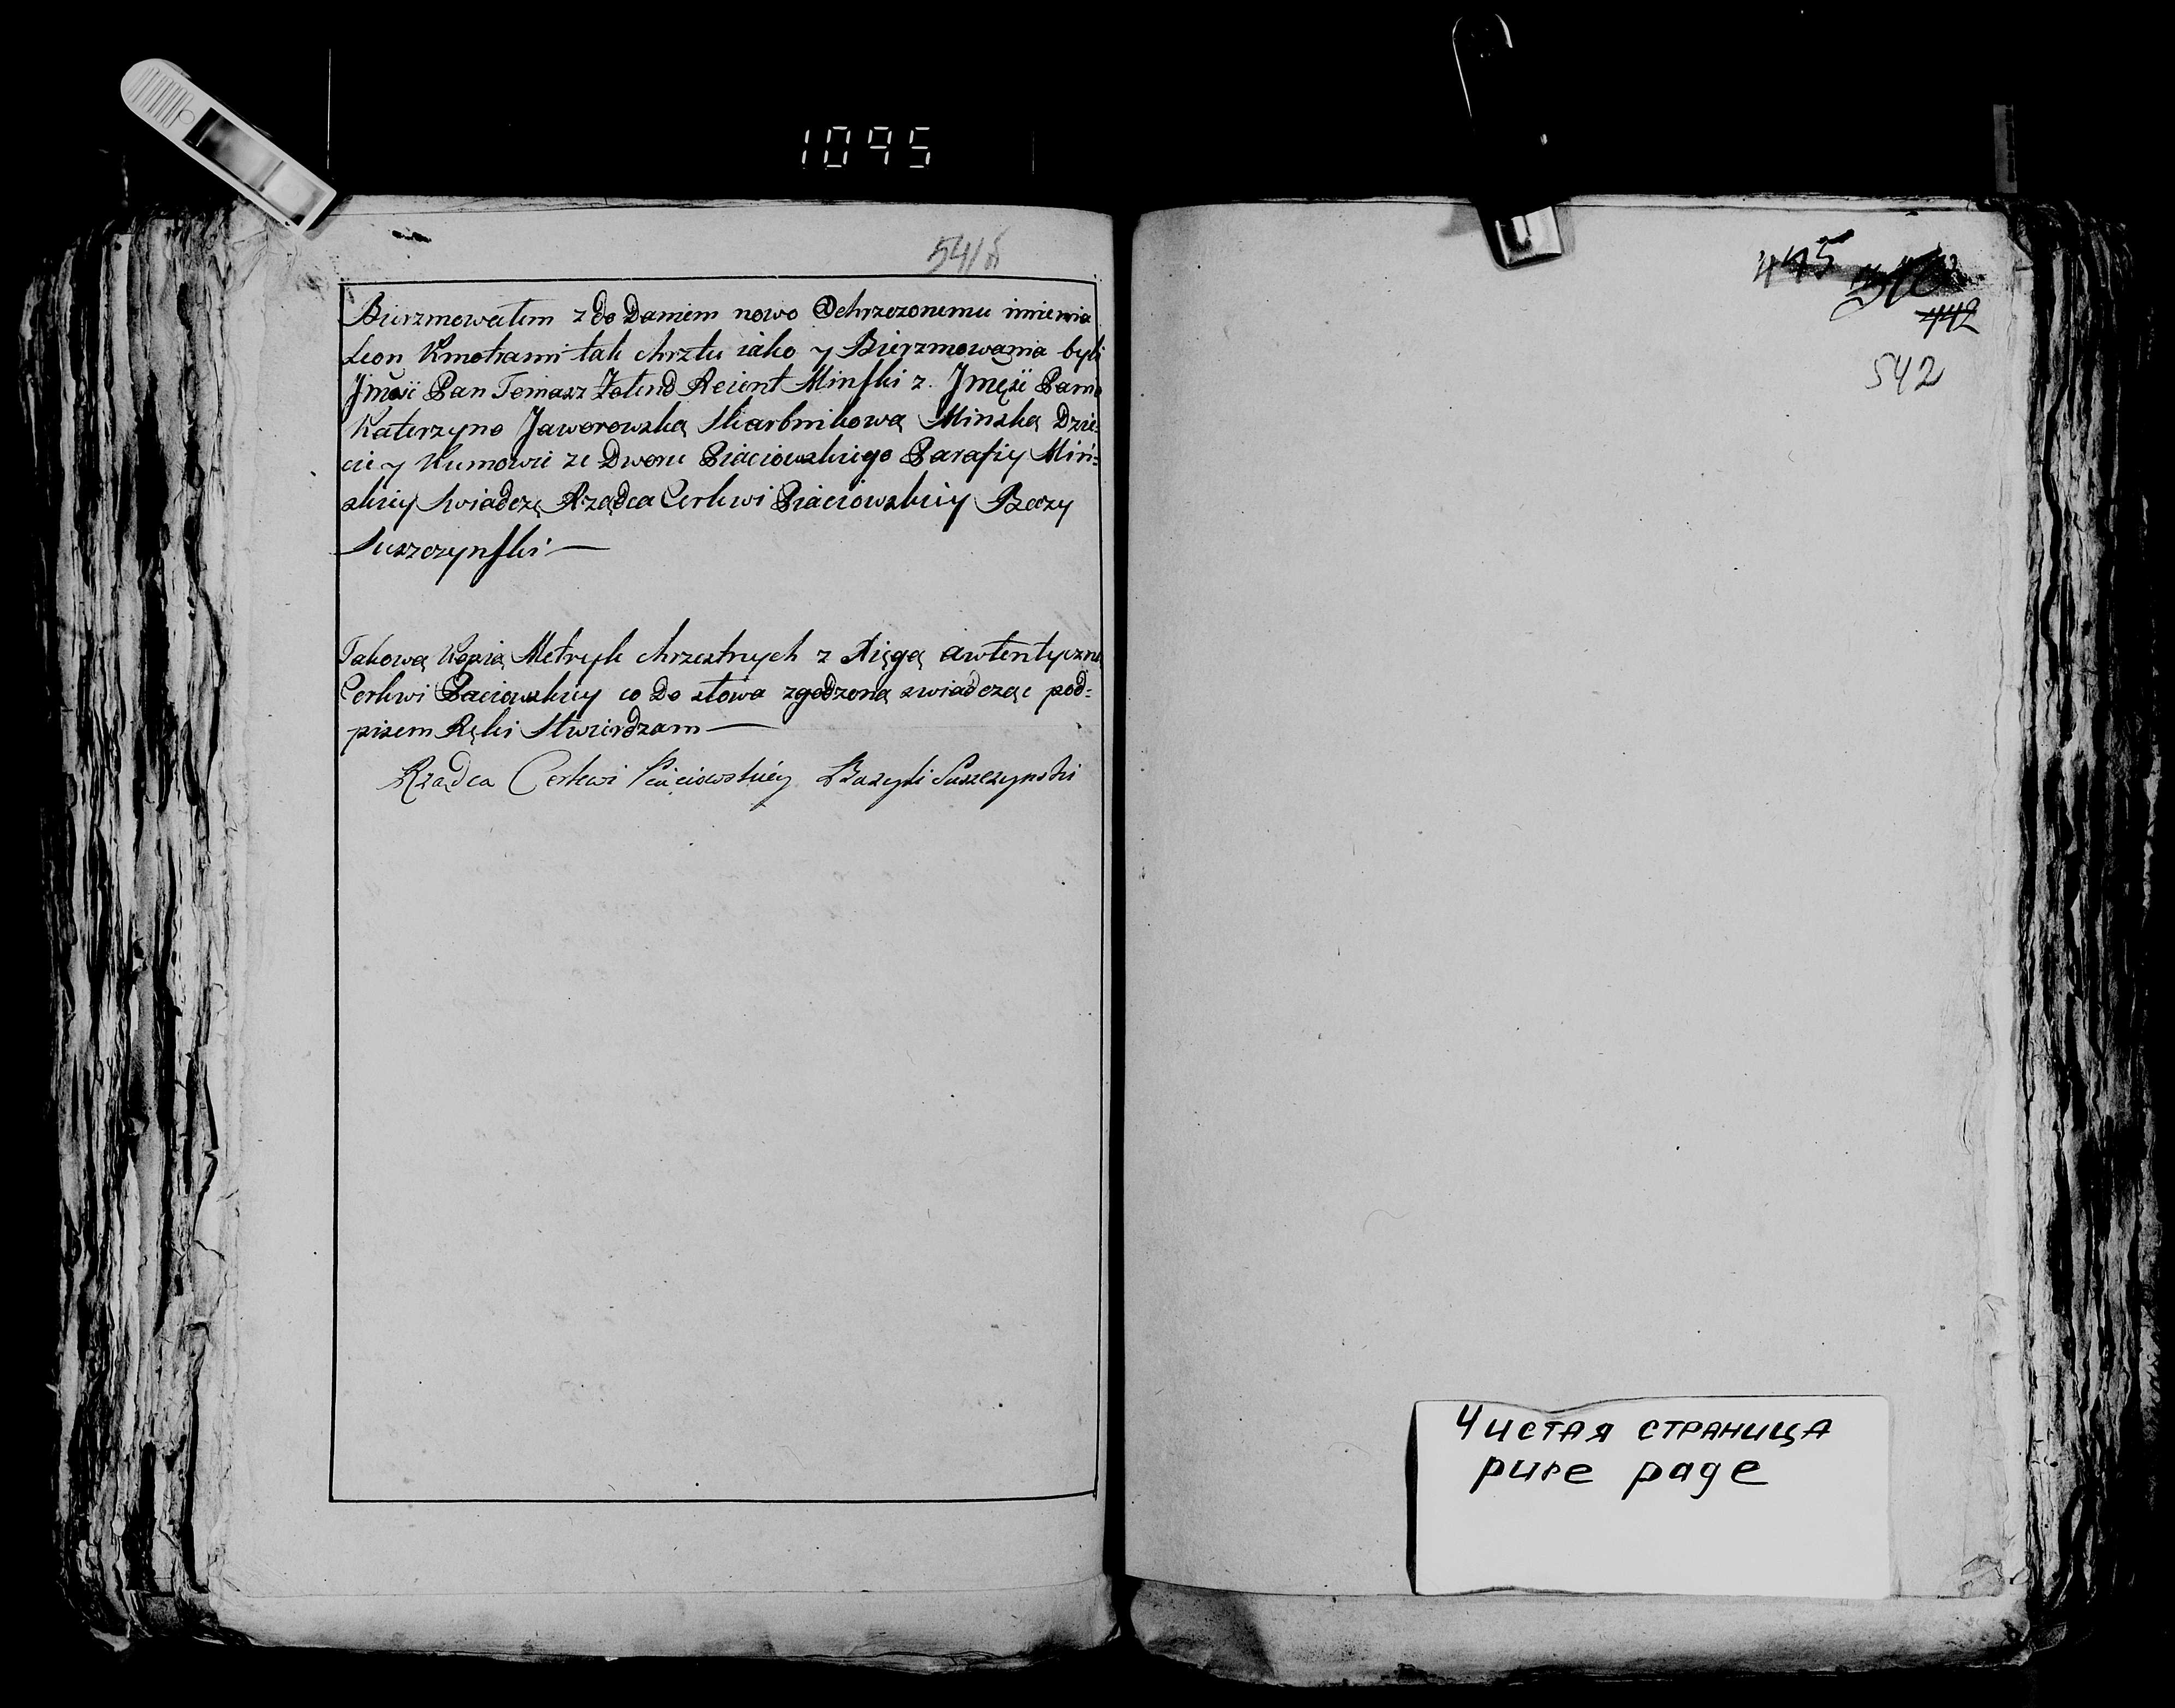 1095
Bierzmowałem z do Daniem nowo Ochrzczonemu imienia
Leon Kmotrami tak chrztu iako y Bierzmowania byli
Jmść Pan Tomasz Zołend Reient Minski z Jmcią Panią
Katerzyno Jaworowską Skarbnikową Minską Dzie-
cie y Kumowie ze Dworu Piaciowskiego Parafiy Miń-
skiey swiadczę Rządca Cerkwi Piaciowskiey Bazy
Suszczynski —
Takową Kopią Metryk chrzestnych z Xięgą awtentyczną
Cerkwi Paciowskiey co do słowa zgodzoną swiadcząc pod-
pisem Ręki Stwierdzam —
Rządca Cerkwi Piaciowskiey Bazyli Suszczynski
445
442
542
Чистая страница
pure page